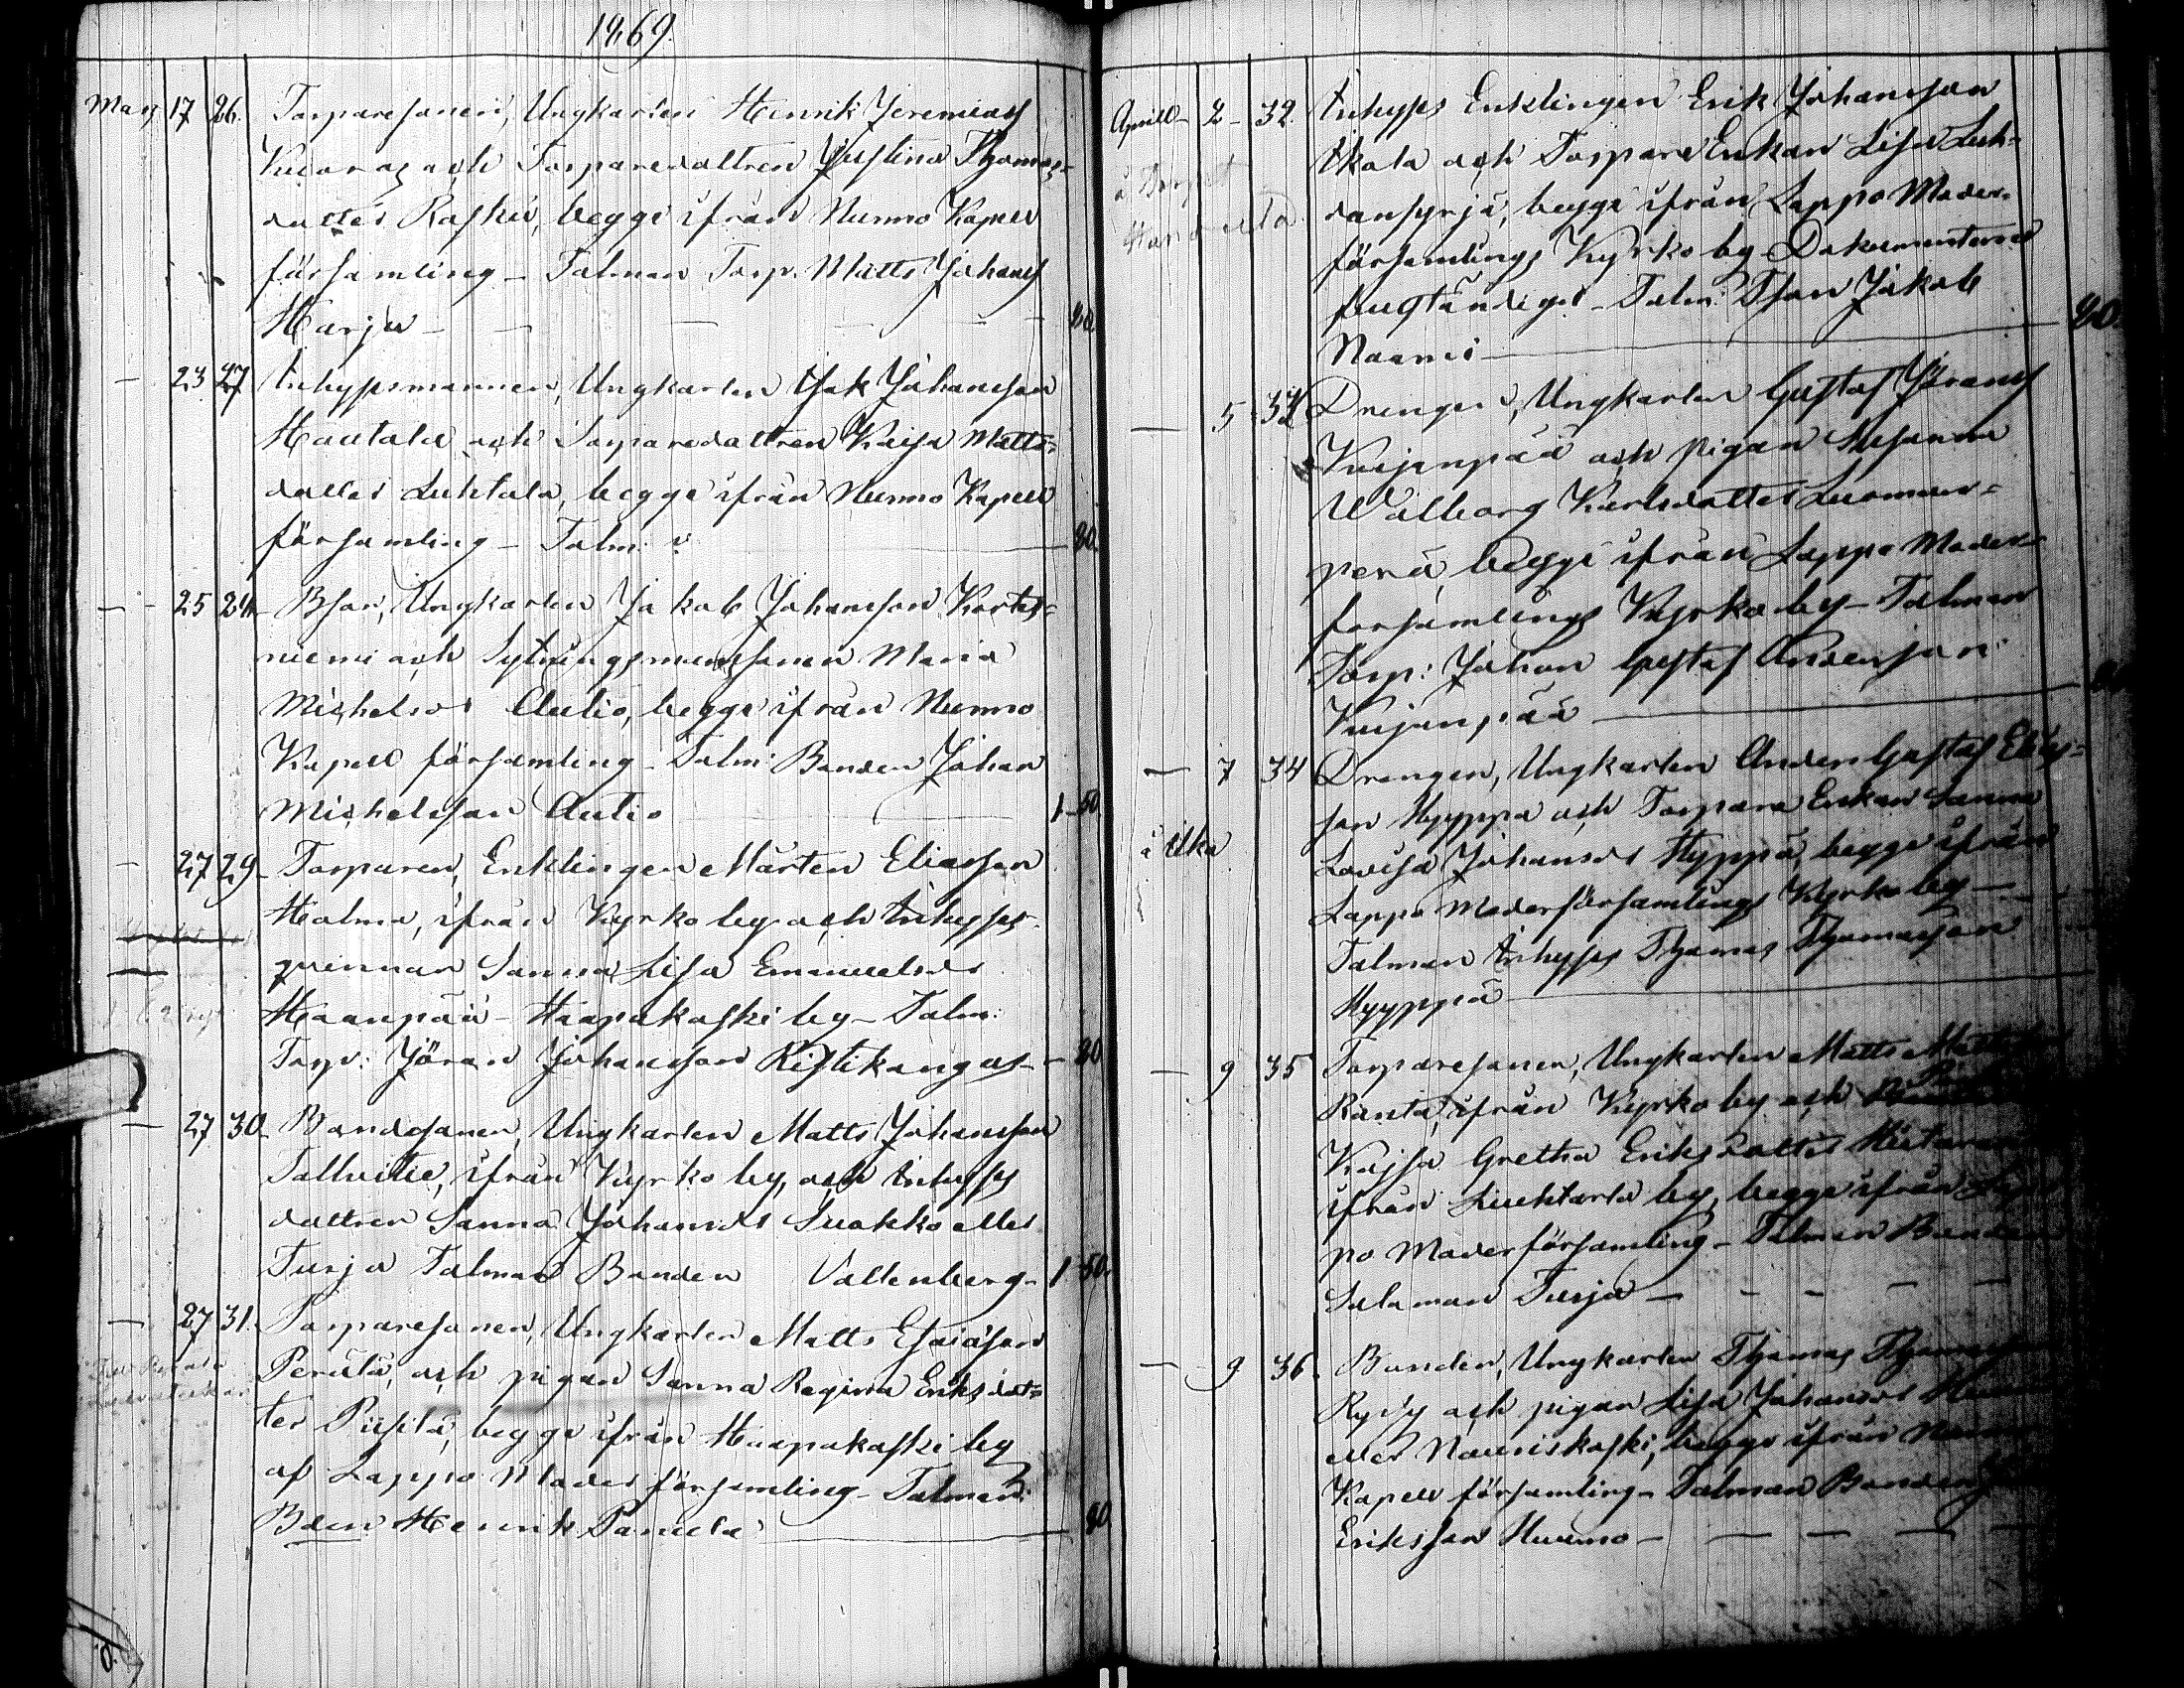 1869.
Mars 17 26. Torparesonen, Ungkarlen Henrik Jeremias
Kuoras och Torparedottren Justina Thomas-
dotter Rasku, begge ifrån Nurmo Kapell
församling – Talman Torp. Matts Johans
Harju – 80.
– 23 27 Inhyssmannen, Ungkarlen Isak Johansson
Hautala och Torparedottren Kaisa Matts-
dotter Luhtala, begge ifrån Nurmo Kapell
församling – Talm: 80.
– 25 28. Bson, Ungkarlen Jakob Johansson Kortes-
niemi och Sytningsmans Maria
Michelsdr Autio, begge ifrån Nurmo
Kapell församling – Talm: Bonden Johan
Michelsson Autio 1–50
– 27 29 – Torparen, Enklingen Mårten Eliasson
Holma, ifrån Kyrkoby och Inhyses
qvinnan Sanna Lisa Emanuelsdr
Haanpää – Haapakoski by – Talm:
Torp: Jöran Johansson Ristikangas – 80
– 27 30. Bondesonen, Ungkarlen Matts Johansson
Tallvitie, ifrån Kyrko by, och Inhyses
dottren Sanna Johansdr Suokko eller
Turja Talman Bonden Vallenberg – 1–50.
– 27 31. Torparesonen, Ungkarlen Matts Esaiasson
Perälä, och pigan Sanna Regina Eriksdot-
ter Piisilä, begge ifrån Haapakoski by
af Lappo Moderförsamling – Talman:
Bden Henrik Panula 80
Aprill – 2 – 32. Inhyses Enklingen Erik Johansson
Ikola och Torpare Enkan Lisa Luh-
tansyrjä, begge ifrån Lappo Moder-
församlings Kyrko by Dokumenterna
fullständiga – Talm: Tson Jakob
Naarmi – 80.
– 5 33 Drengen, Ungkarlen Gustaf Jörans
Kujanpää och Pigan Susanna
Wallborg Karlsdotter Luoman-
perä, begge ifrån Lappo Moder-
församlings Kyrko by – Talman
Torp: Johan Gustaf Andersson
Kujanpää
– 7 34 Drengen, Ungkarlen Anders Gustaf Elias-
son Hyyppä och Torpare Enkan Sanna
å Ilka Lovisa Johansdr Hyppä, begge ifrån
Lappo Moderförsamlings Kyrko by –
Talman Inhyses Thomas Thomasson
Hyyppä
– 9 35 Torparesonen, Ungkarlen Matts
Ranta, ifrån Kyrko by och
Kajsa Gretha Eriksdotter
ifrån Liuhtarla by, begge ifrån Lap-
po Moderförsamling – Talman Bonden
Salomon Turja –
– 9 36. Bonden, Ungkarlen Thomas
Rysy och pigan Lisa Johansdr
eller Nauriskoski, begge ifrån Nurmo
Kapell församling – Talman Bonden
Eriksson Nurmo –